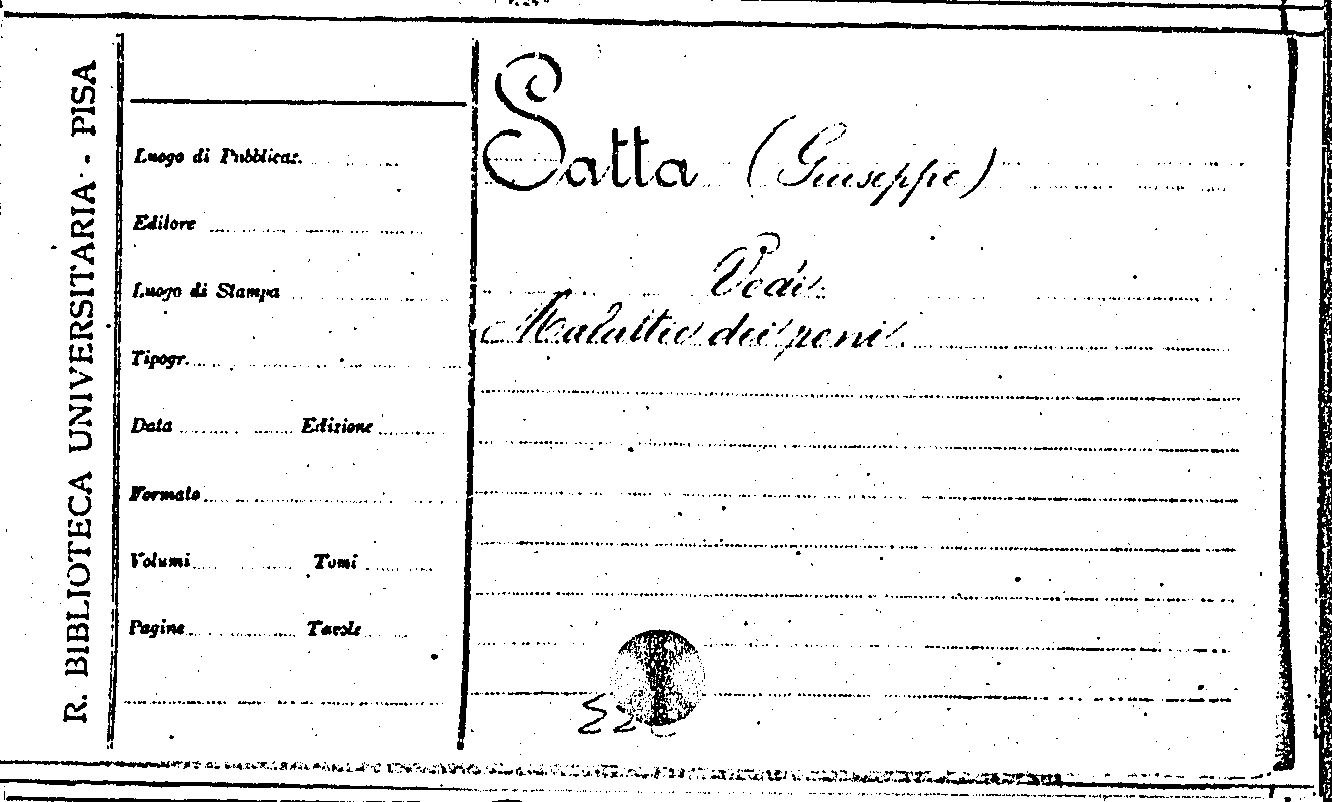 R. BIBLIOTECA UNIVERSITARIA - PISA
Luogo di Pubblicaz.
Editore
Luogo di Stampa
Tipogr.
Data Edizione
Formato
Volumi Tomi
Pagine Tavole
Satta (Giuseppe)
Vedi
Malattie dei peni